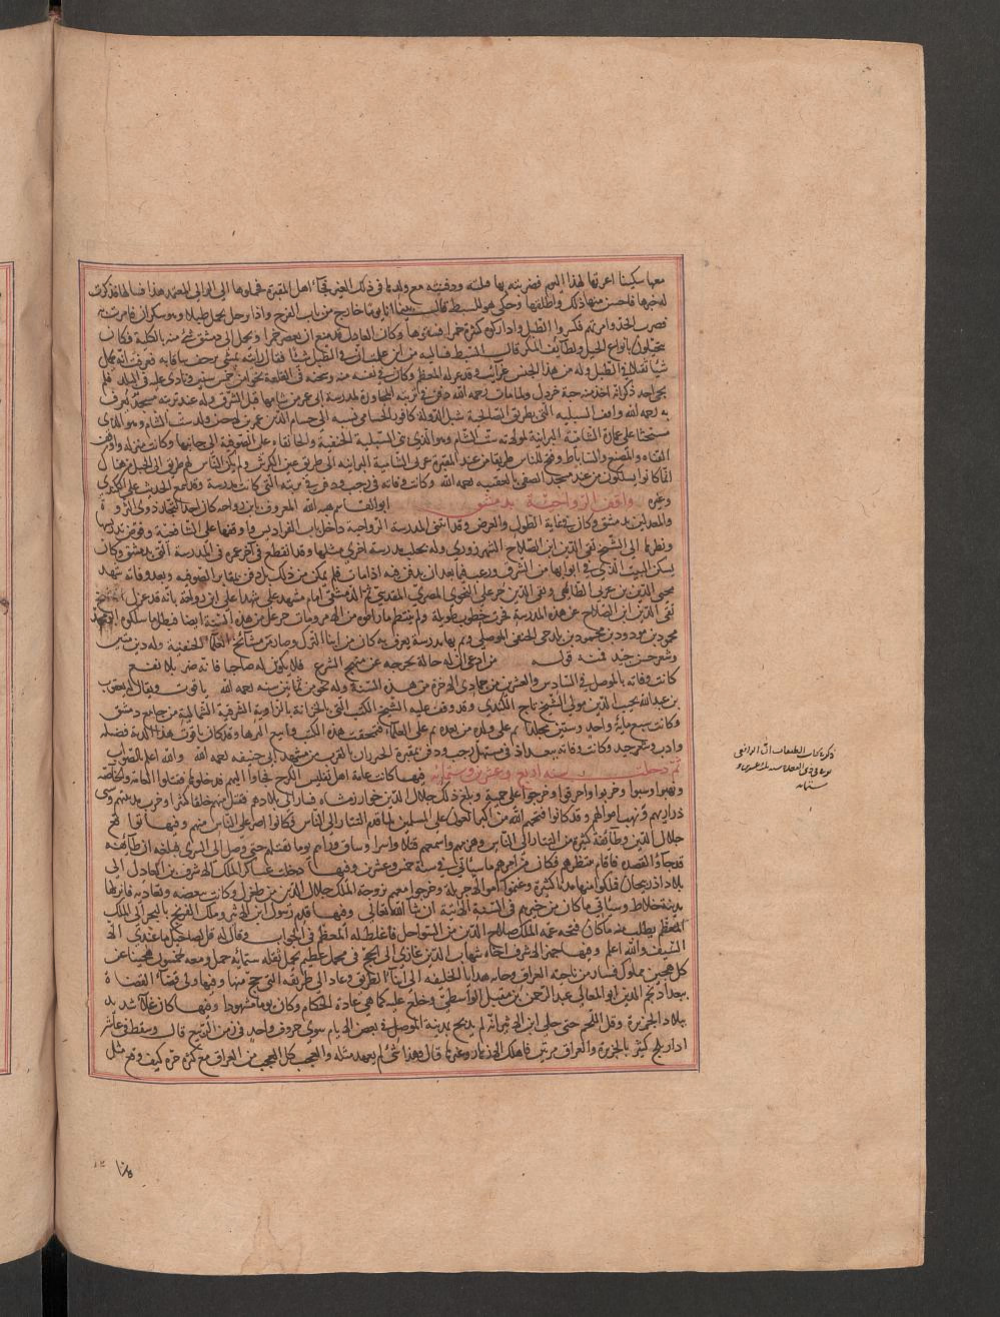 معها سكينا اعرتها لهذا اليوم فضربته بها فقتلته ودفنته مع ولدها في ذلك القبر فجاء اهل المقبرة فحملوها الى الوالى المعتمد هذا فسالها فذكرت
له خبرها فاحسن منها ذلك واطلقها وحكى عنه السبط قال بينما انا يوما خارج من باب الفرج واذا رجل يحمل طبلا وهو سكران فامرت به
فضرب الحد وامرتهم فكسروا الطبل واذا زكرة كبيرة خمرا فشقوها وكان العادل قد منع ان يعصر خمرا ويحمل الى دمشق شئ منه بالكلية فكان
يتحيلون بانواع الحيل ولطائف المكر قال السبط فسالته من اين علمت ان في الطبل شيئا فقال رايته يمشى ترجف ساقاه فعرفت انه يحمل
شيئا ثقيلا في الطبل وله من هذا الجنس غرائب وقد عزله المعظم وكان في نفسه منه وسجنه في القلعة نحوا من خمس سنين ونادى عليه في البلد فلم
يجئ احد ذكر انه اخذ منه حبة خردل ولما مات رحمه الله دفن في تربته المجاورة لمدرسة ابى عمر من شامها قبلى الشرق وله عند تربته مسجد يعرف
به رحمه الله واقف الشبلية التى بطريق الصالحية شبل الدولة كافور الحسامى نسبة الى حسام الدين عمر بن لاجين ولد ست الشام وهو الذى
مستحثا على عمارة الشامية البرانية لمولاته ست الشام وهو الذى بنى الشبلية للحنفية والخانقاه على الصوفية الى جانبها وكانت منزله واوقف
القناة والمصنع والساباط وفتح للناس طريقا من عند المقبرة غربى الشامية البرانية الى طريق عين الكرش ولم يكن الناس لهم طريق الى الجبل من هناك
انما كانوا يسلكون من عند مسجد الصفى بالعقيبة رحمه الله وكانت وفاته في رجب ودفن في تربته التى كانت مدرسة وقد سمع الحديث على الكندى
وغيره واقف الرواحية بدمشق ابو القاسم هبة الله المعروف بابن رواحه كان احد التجار ذوى الثروة
والمعدلين بدمشق وكان في غاية الطول والعرض وقد ابتنى المدرسة الرواحية داخل باب الفراديس ووقفها على الشافعية وفوض تدريسها
ونظرها الى الشيخ تقى الدين ابن الصلاح الشهرزورى وله بحلب مدرسة اخرى مثلها وقد انقطع في آخر عمره في المدرسة التى بدمشق وكان
يسكن البيت الذى في ايوانها من الشرق ورغب فيما بعد ان يدفن فيه اذا مات فلم يمكن من ذلك بل دفن بمقابر الصوفية وبعد وفاته شهد
محيى الدين بن عربى الطائى وتقى الدين خزعل النحوى المصرى المقدسى ثم الدمشقى امام مشهد على شهدا على ابن رواحة بانه قد عزل الشيخ
تقى الدين ابن الصلاح عن هذه المدرسة فجرت خطوب طويلة ولم ينتظم ما راموه من الامر ومات خزعل من هذه السنة ايضا فبطل ما سلكوه ابو محمد
محمود بن مودود بن محمود بن بلدجى الحنفى الموصلى وله بها مدرسة يعرف به كان من ابنا الترك وصار من مشائخ العلما الحنفية وله دين متين
وشعر حسن جيد فمنه قوله من ادعى ان له حالة تخرجه عن منهج الشرع فلا تكونن له صاحبا فانه ضر بلا نفع
كانت وفاته بالموصل في السادس والعشرين من جمادى الآخرة من هذه السنة وله نحو من ثمانين سنه رحمه الله ياقوت ويقال له يعقوب
بن عبد الله نجيب الدين مولى الشيخ تاج الكندى وقد وقف عليه الشيخ الكتب التى بالخزانة بالزاوية الشرقية الشمالية من جامع دمشق
وكانت سبع مائة واحد وستين مجلدا ثم على ولده من بعده ثم على العلماء فتمحقت هذه الكتب وبيع اكثرها وقد كان ياقوت هذا لديه فضيلة
وادب وشعر جيد وكانت وفاته ببغداد في مستهل رجب ودفن بمقبرة الخيزران بالقرب من مشهد ابى حنيفة رحمه الله والله اعلم بالصواب
ثم دخلت سنه اربع وعشرين وستمائة فيها كانت عامة اهل تفليس الكرج فجاؤا اليهم فدخلوها فقتلوا العامة والخاصة
ونهبوا وسبوا وخربوا واحرقوا وخرجوا على حمية وبلغ ذلك جلال الدين خوارزمشاه فسار الى بلادهم فقتل منهم خلقا كثيرا وخرب مدينتهم وسبى
ذراريهم ونهب اموالهم
جلال الدين وطائفة كثيرة من التتار الى الناس وهزمهم واسرهم قتلا واسرا وساق وراءهم يوما فقتلهم حتى وصل الى الرى فبلغه ان طائفة
قد جاؤا القصده فاقام منتظرهم فكان من امرهم ماسياتى في سنة خمس وعشرين وفيها دخلت عساكر الملك الاشرف بن العادل الى
بلاد اذربيجان فملكوا منها مدنا كثيرة وغنموا اموالا جزيلة وخرجوا معهم بزوجة الملك جلال الدين بنت طغرل وكانت تبغضه وتعاديه فانزلها
مدينة خلاط وسياتى ما كان من خبرهم في السنة الآتية ان شا الله تعالى وفيها قدم رسول الانبرور ملك الفرنج بالبحر الى الملك
المعظم يطلب منه ما كان فتحه عمه الملك صلاح الدين من السواحل فاغلظ له المعظم في الجواب وقال له قل لصاحبك ما عندى الا
السيف والله اعلم وفيها جهز الاشرف اخاه شهاب الدين غازى الى الحج في محمل عظيم يحمل ثقله ستمائة جمل ومعه خمسون هجينا على
كل هجين مملوك فسار من ناحية العراق وجاءه هدايا الخليفه الى اثناء الطريق وعاد الى طريقه التى حج منها وفيها ولى قضاء القضاة
ببغداد نجم الدين ابو المعالى عبد الرحمن بن مقبل الواسطى وخلع عليه كما هى عادة الحكام وكان يوما مشهودا وفيها كان غلاء شديد
ببلاد الجزيرة وقل اللحم حتى حكى ابن الاثير انه لم يذبح بمدينة الموصل في بعض الايام سوى خروف واحد في زمن الربيع قال وسقط في عاشر
اذار ثلج كثير بالجزيرة والعراق مرتين فاهلك الازهار وغيرها قال وهذا شئ لم يعهد مثله والعجب كل العجب من العراق مع كثرة حره كيف وقع مثل
هذا